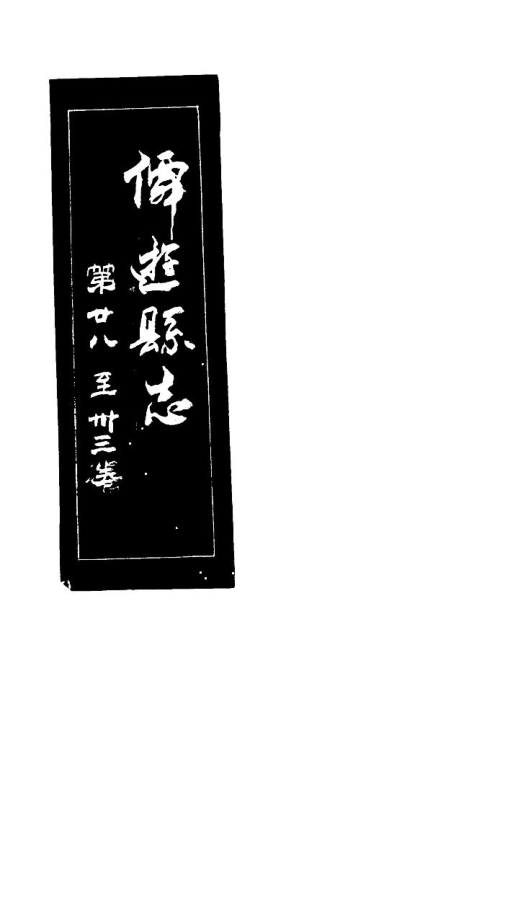 僊遊縣志
第廿八至卅三卷